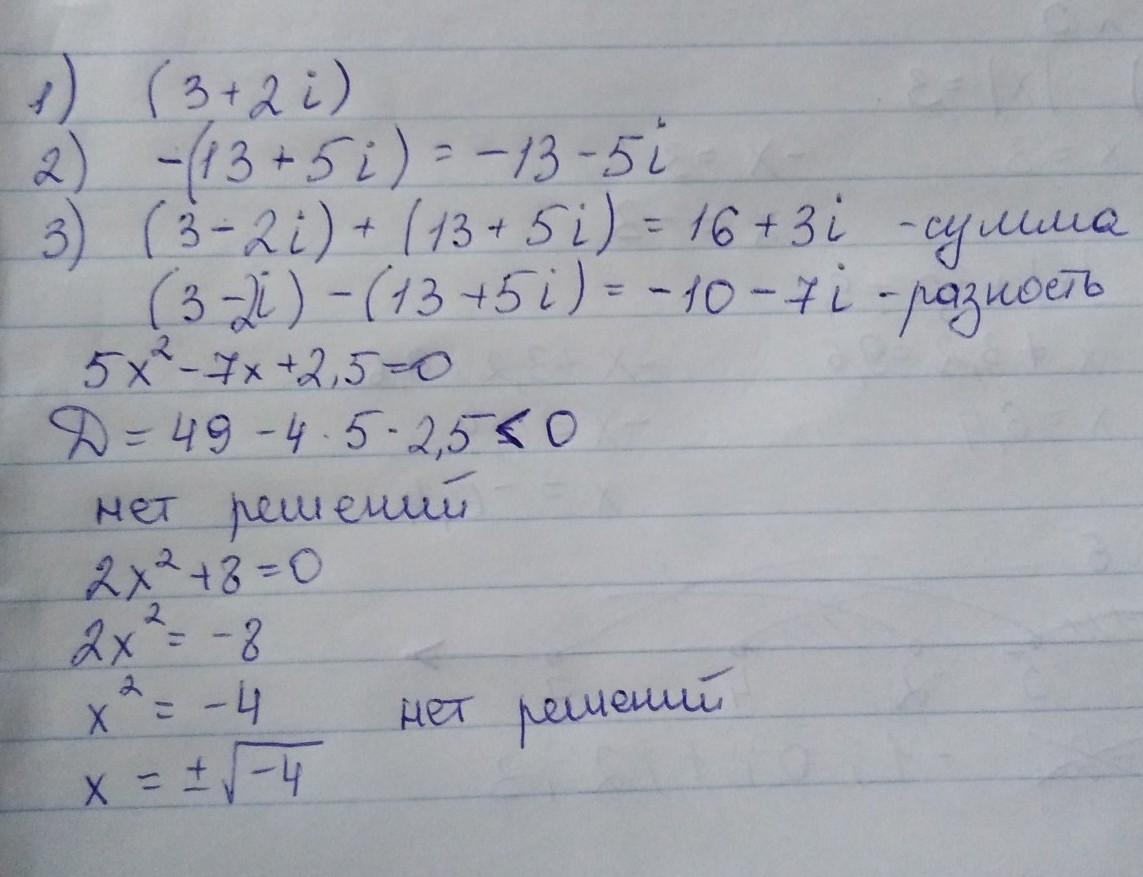 1) (3+2i)
2) -(13+5i) = -13-5i
3) (3-2i) + (13+5i) = 16+3i -сумма
(3-2i) - (13+5i) = -10-7i -разность
5x²-7x+2,5=0
D = 49-4·5·2,5 < 0
нет решений
2x²+8=0
2x² = -8
x² = -4 нет решений
x = ±√-4